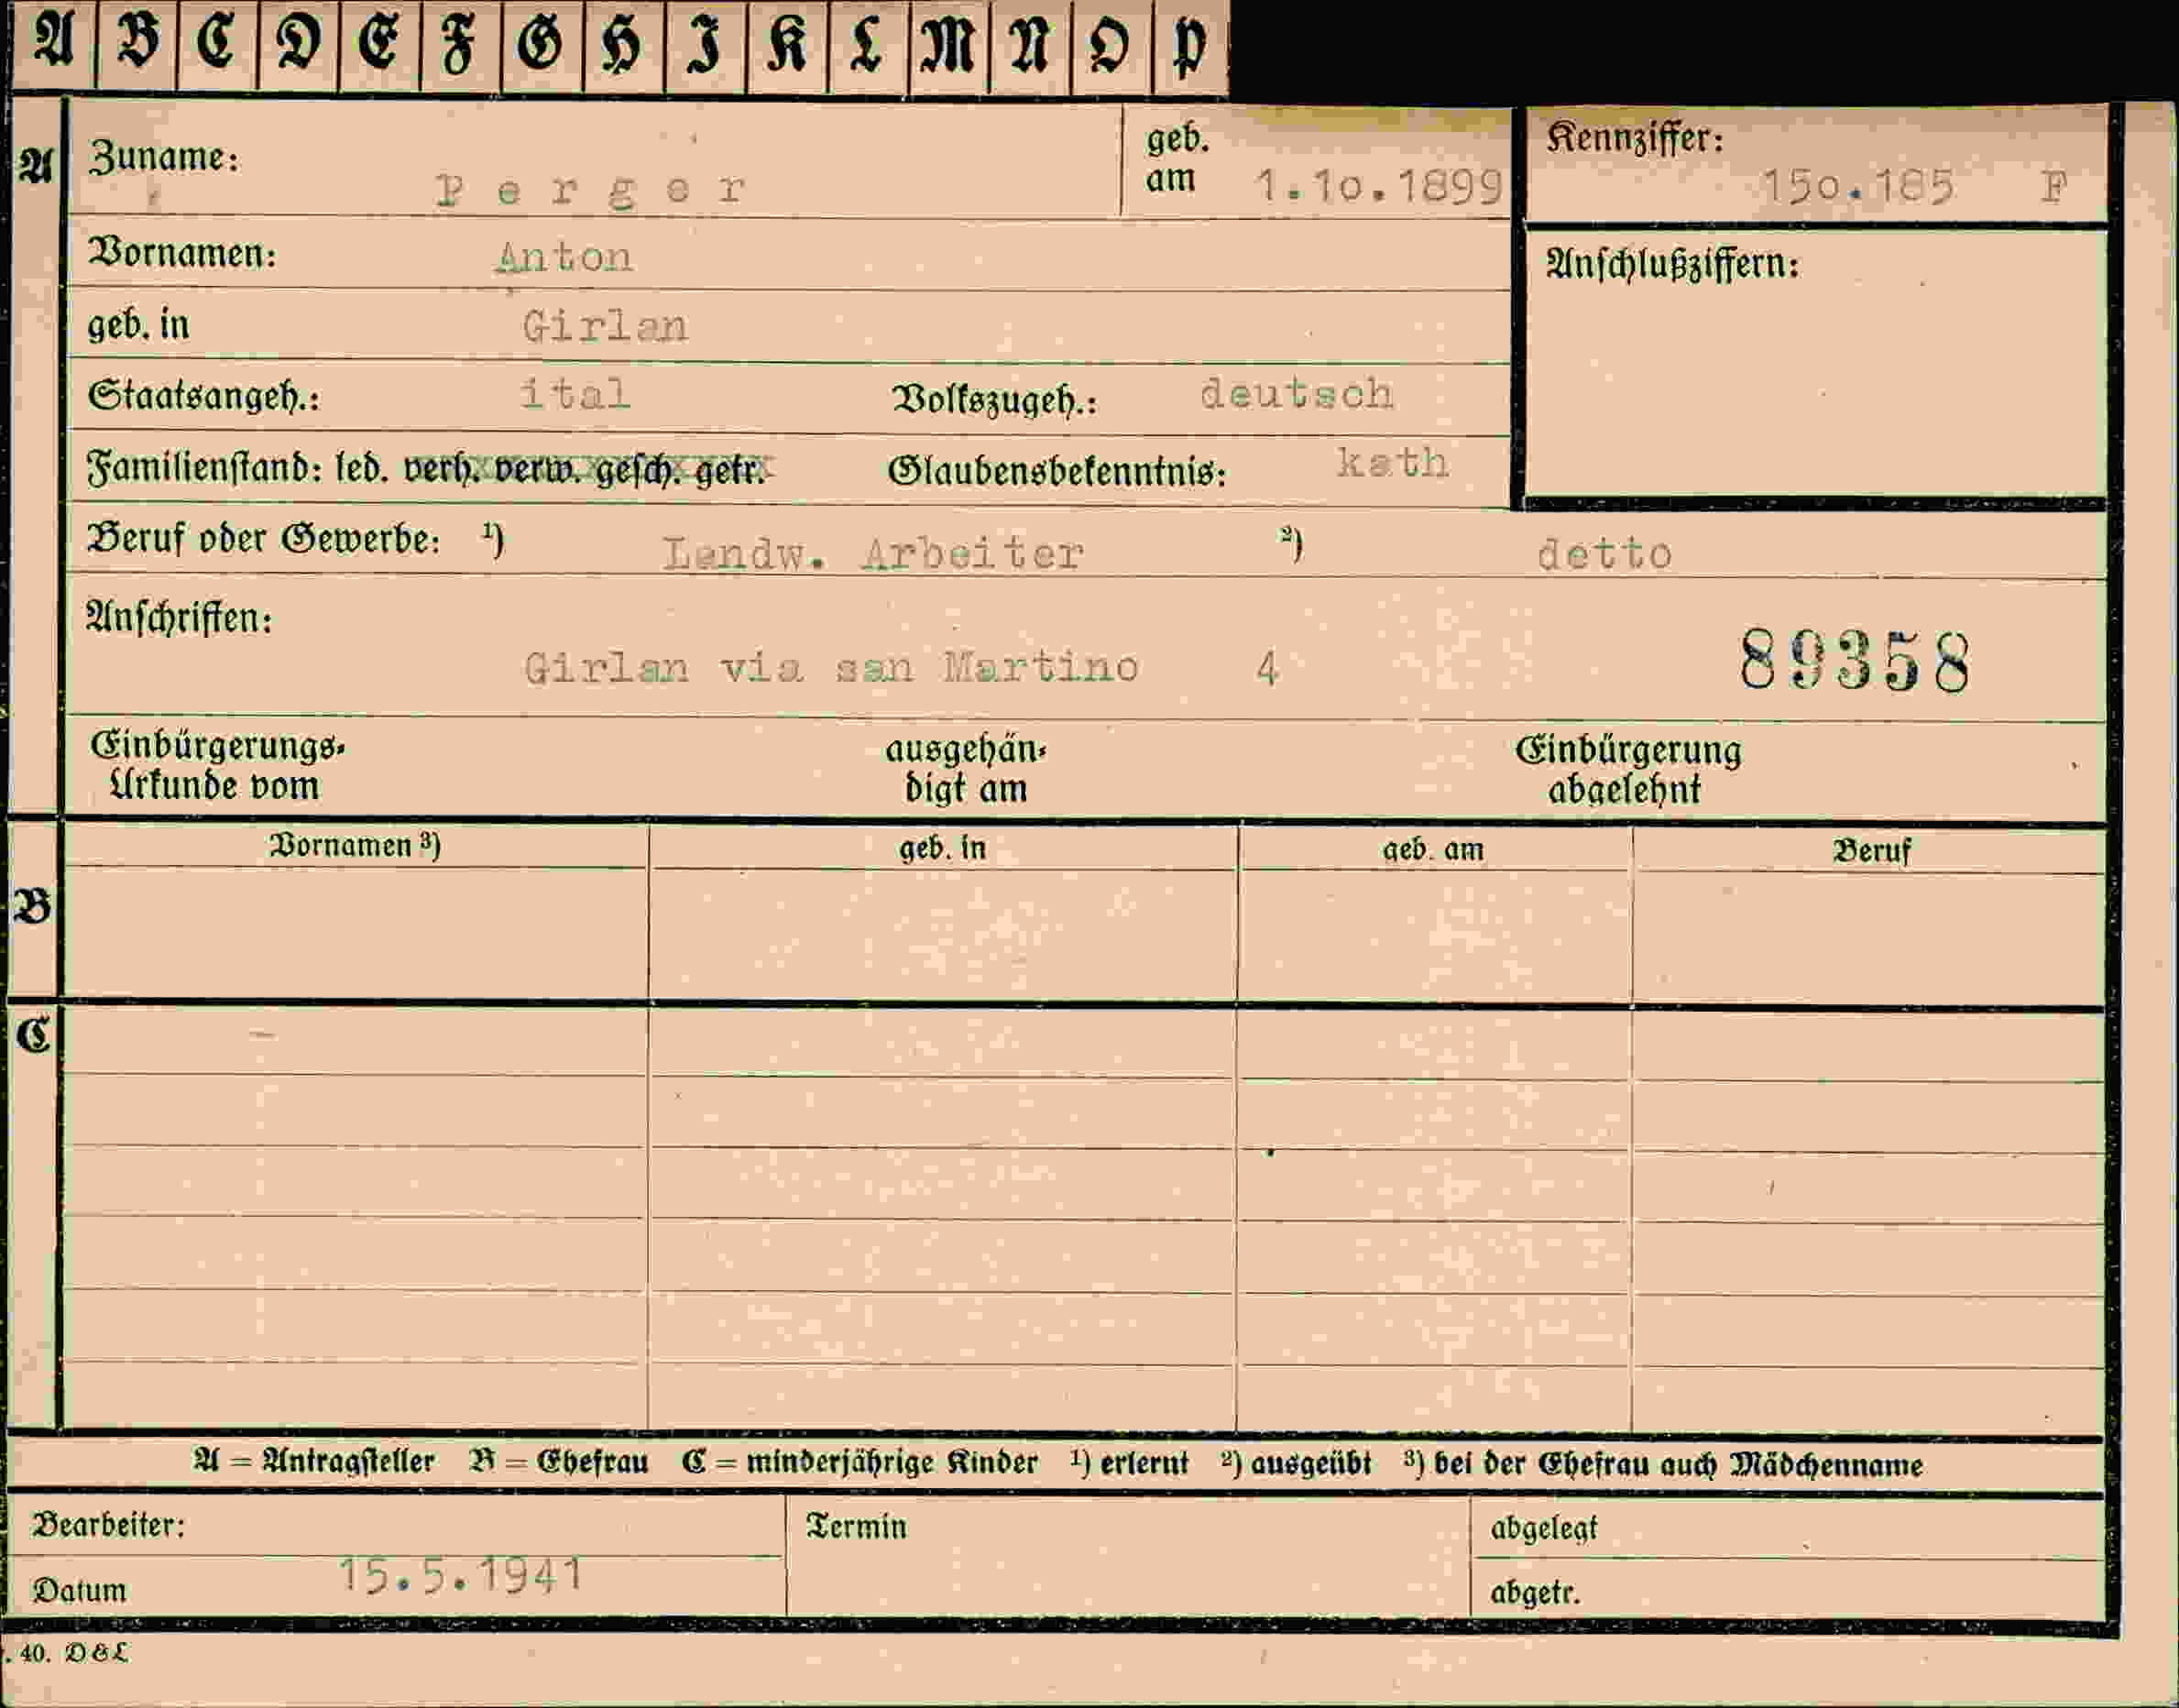 A B C D E F G H I K L M N O P
A Zuname: Perger geb. am 1.10.1899 Kennziffer: 150.185 F
Vornamen: Anton Anschlußziffern:
geb. in Girlan
Staatsangeh.: ital Volkszugeh.: deutsch
Familienstand: led. verh. verw. gesch. getr. Glaubensbekenntnis: kath
Beruf oder Gewerbe: ¹) Landw. Arbeiter ²) detto
Anschriften:
Girlan via san Martino 4 89358
Einbürgerungs-
Urkunde vom
ausgehän-
digt am
Einbürgerung
abgelehnt
B Vornamen ³) geb. in geb. am Beruf
C
A = Antragsteller B = Ehefrau C = minderjährige Kinder ¹) erlernt ²) ausgeübt ³) bei der Ehefrau auch Mädchenname
Bearbeiter: Termin abgelegt
Datum 15.5.1941 abgetr.
. 40. D&L